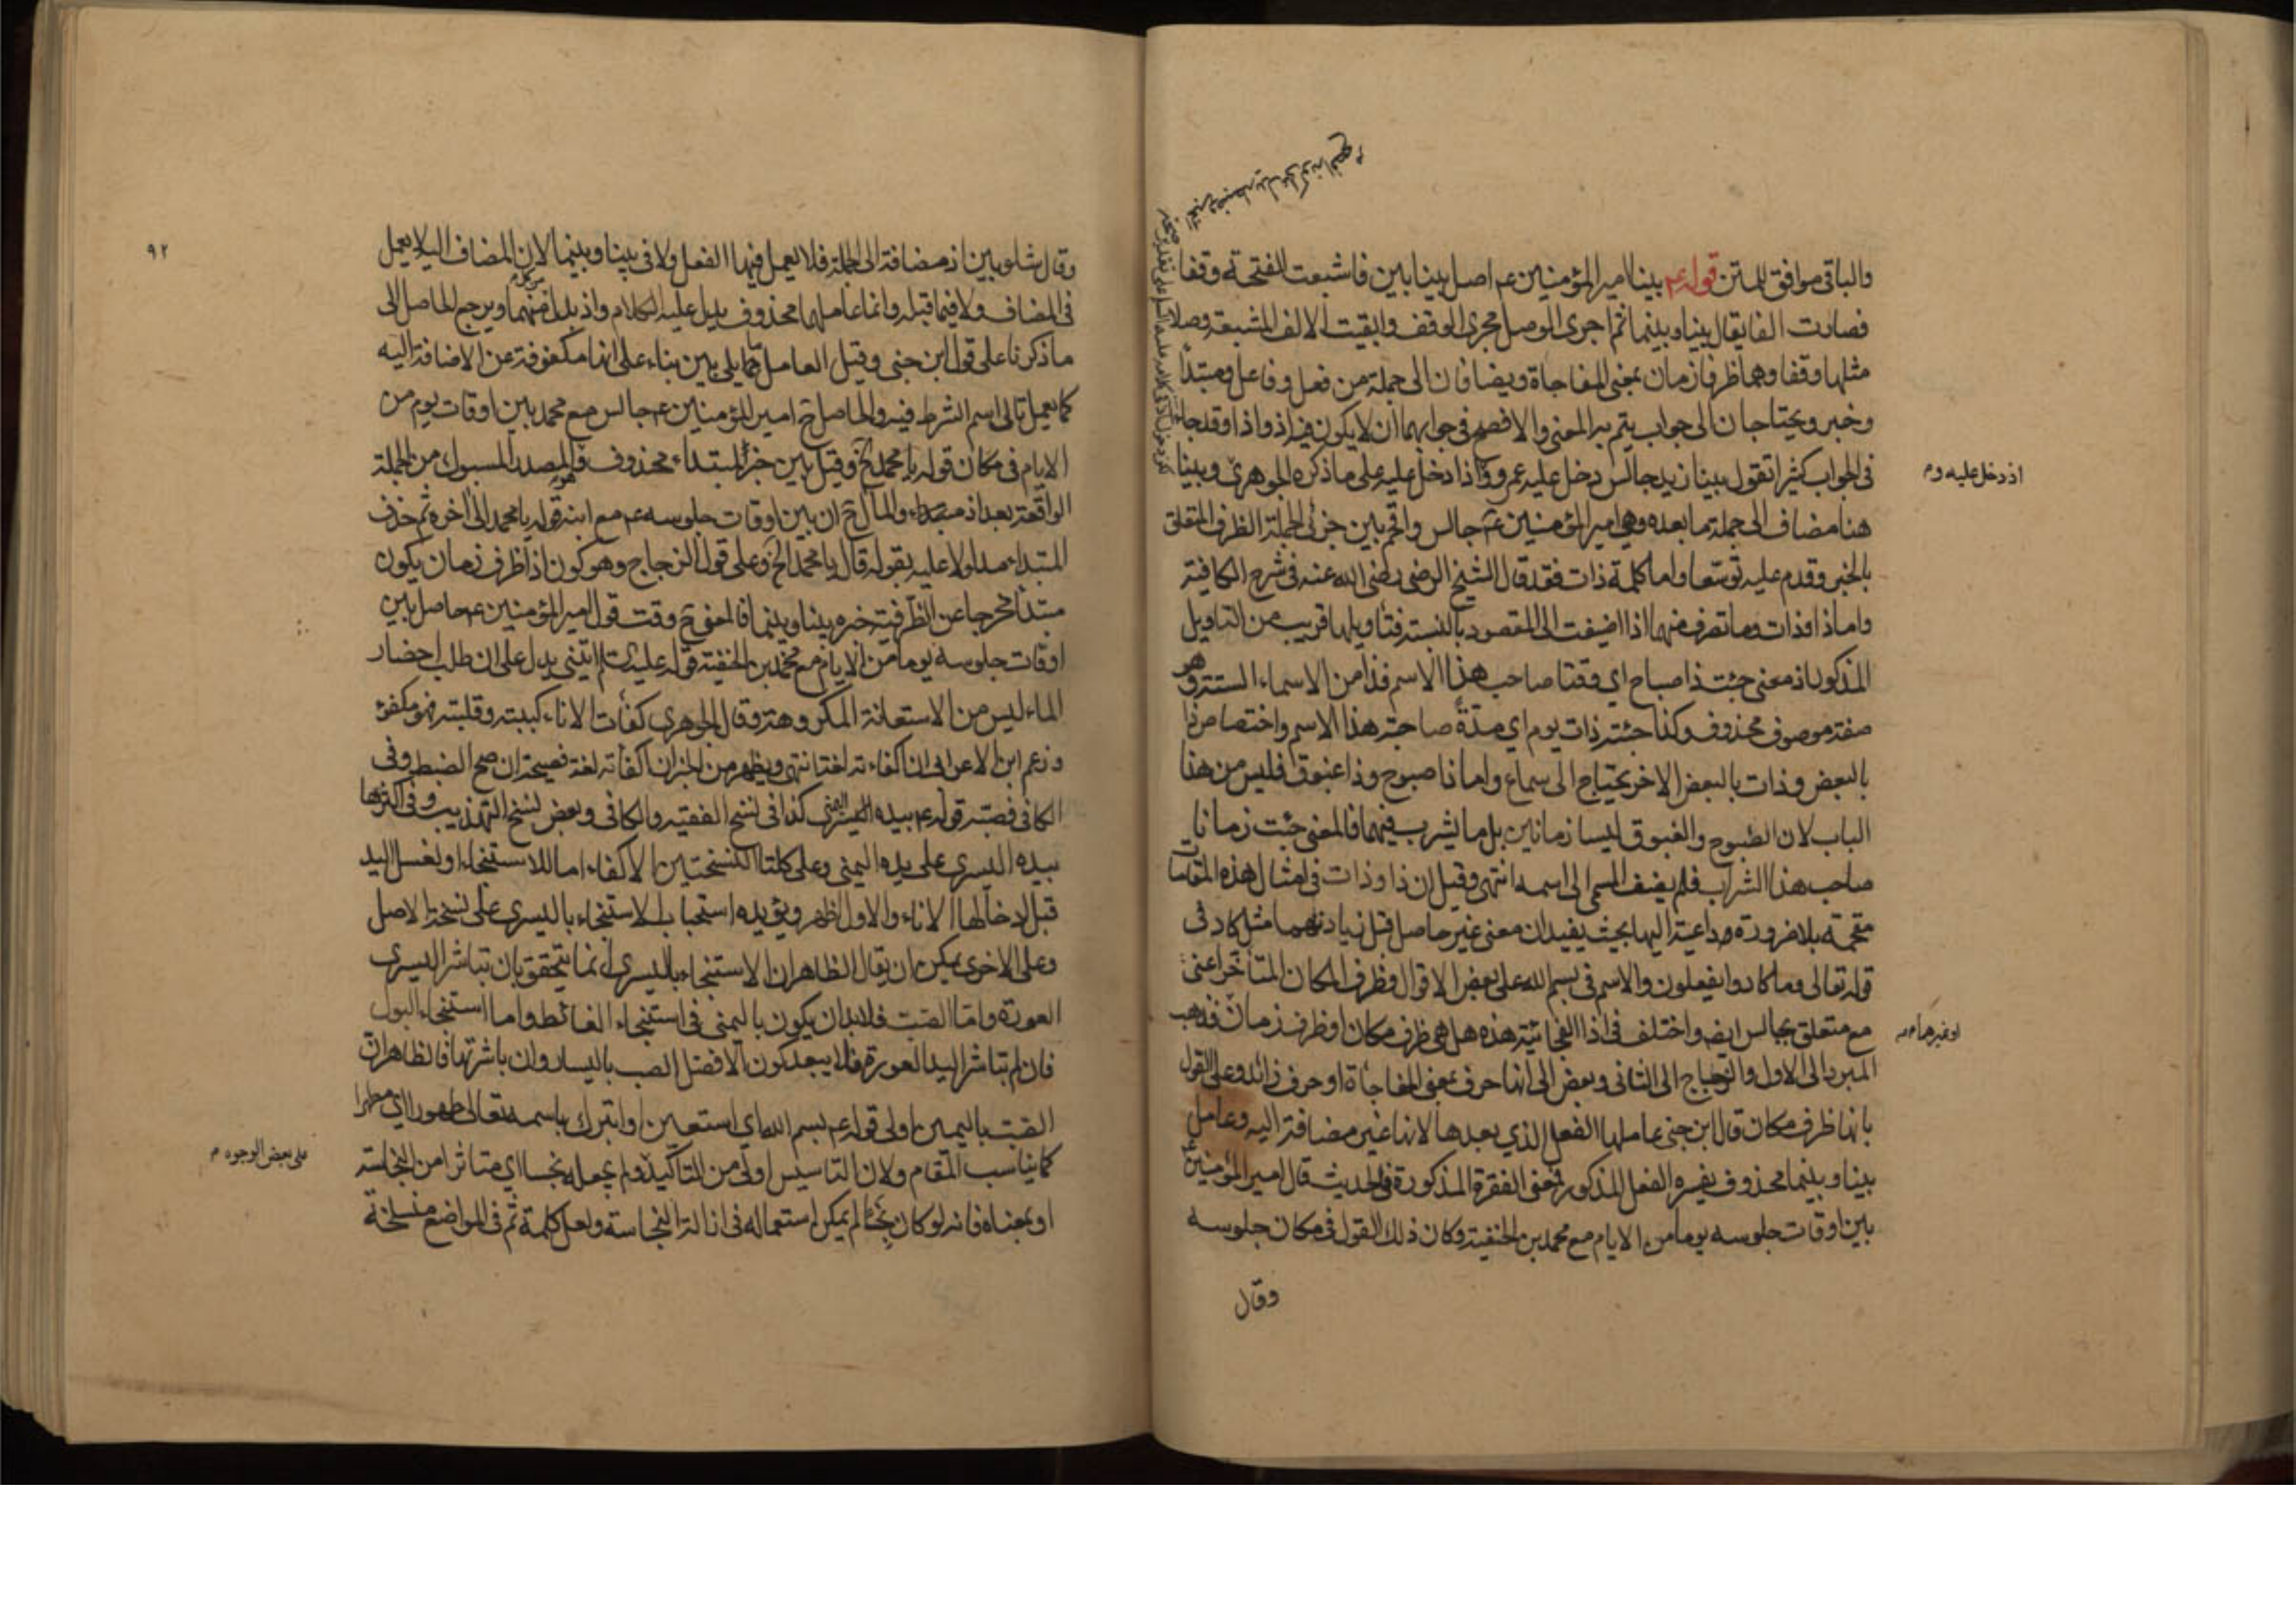 والباقی موافق للمتن قوله ع بینا امیر المؤمنین ع اصل بینا بین فاشبعت الفتحة وقفا
فصارت الفا یقال بینا وبینما ثم اجری الوصل مجری الوقف وابقیت الالف المشبعة وصلا
مثلها وقفا وهما ظرفا زمان بمعنی المفاجاة ویضافان الی جملة من فعل وفاعل ومبتدا
وخبر ویحتاجان الی جواب یتم به المعنی والافصح فی جوابهما ان لا یکون فیه اذ واذا وقد جاء
فی الجواب کثیرا تقول بینا زید جالس دخل علیه عمرو واذا دخل علیه علی ما ذکره الجوهری وبینا
هنا مضاف الی جملة ما بعده وهی امیر المؤمنین ع جالس واقحم بین جزئی الجملة الظرف المتعلق
بالخبر وقدم علیه توسعا واما کلمة ذات فقد قال الشیخ الرضی رضی الله عنه فی شرح الکافیة
واما ذا وذات وما تصرف منهما اذا اضیفت الی المقصود بالنسبة فتأویلها قریب من التاویل
المذکور اذ معنی جئت ذا صباح ای وقتا صاحب هذا الاسم فذا من الاسماء الستة وهو
صفة موصوف محذوف وکذا جئته ذات یوم ای مدة صاحبة هذا الاسم واختصاص ذا
بالبعض وذات بالبعض الاخر یحتاج الی سماع واما ذا صبوح وذا غبوق فلیس من هذا
الباب لان الصبوح والغبوق لیسا زمانین بل ما یشرب فیهما فالمعنی جئت زمانا
صاحب هذا الشراب فلم یضف المسمی الی اسمه انتهی وقیل ان ذا وذات فی امثال هذه المقامات
مقحمة بلا ضرورة داعیة الیها بحیث یفیدان معنی غیر حاصل قبل زیادتهما مثل کاد فی
قوله تعالی وما کادوا یفعلون والاسم فی بسم الله علی بعض الاقوال وظرف المکان المتأخر اعنی
مع متعلق بجالس ایضه واختلف فی اذا الفجائیة هذه هل هی ظرف مکان او ظرف زمان فذهب
المبرد الی الاول والزجاج الی الثانی وبعض الی انها حرف بمعنی المفاجأة او حرف زائد وعلی القول
بانها ظرف مکان قال ابن جنی عاملها الفعل الذی بعدها لانها غیر مضافة الیه وعامل
بینا وبینما محذوف یفسره الفعل المذکور فمعنی الفقرة المذکورة فی الحدیث قال امیر المؤمنین ع
بین اوقات جلوسه یوما من الایام مع محمد بن الحنفیة وکان ذلک القول فی مکان جلوسه
وقال
اذ دخل علیه وم
او غیرهما مه
۹۲
وقال شلوبین اذ مضافة الی الجملة فلا یعمل فیها الفعل ولا فی بینا وبینما لان المضاف الیه لا یعمل
فی المضاف ولا فیما قبله وانما عاملها محذوف یدل علیه الکلام واذ بدل منهما ویرجع الحاصل الی
ما ذکرنا علی قول ابن جنی وقیل العامل ما یلی بین بناء علی انها مکفوفة عن الاضافة الیه
کما یعمل تالی اسم الشرط فیه والحاصل ح امیر المؤمنین ع جالس مع محمد بین اوقات یوم من
الایام فی مکان قوله یا محمد الخ وقیل بین خبر لمبتداء محذوف والمصدر المسبوک من الجملة
الواقعة بعد اذ مبتداء والمآل ح ان بین اوقات جلوسه ع مع ابنه قوله یا محمد الی اخره ثم حذف
المبتداء مدلولا علیه بقوله قال یا محمد الخ وعلی قول الزجاج وهو کون اذا ظرف زمان یکون
مبتدأ مخرجا عن الظرفیة خبره بینا وبینما فالمعنی ح وقت قول امیر المؤمنین ع حاصل بین
اوقات جلوسه یوما من الایام مع محمد بن الحنفیة قوله علیه السلام ائتنی یدل علی ان طلب احضار
الماء لیس من الاستعانة المکروهة وقال الجوهری کفأت الاناء کببته وقلبته فهو مکفوء
وزعم ابن الاعرابی ان اکفاءته لغة انتهی ویظهر من الخبر ان اکفأته لغة فصیحة ان صح الضبط وفی
الکافی فصبه قوله ع بیده الیسری کذا فی نسخ الفقیه والکافی وبعض نسخ التهذیب وفی اکثرها
بیده الیسری علی یده الیمنی وعلی کلتا النسختین الاکفاء اما للاستنجاء او لغسل الید
قبل ادخالها الاناء والاول اظهر ویؤیده استحباب الاستنجاء بالیسری علی نسخة الاصل
وعلی الاخری یمکن ان یقال الظاهر ان الاستنجاء بالیسری انما یتحقق بان تباشر الیسری
العورة واما الصب فلا بد ان یکون بالیمنی فی استنجاء الغائط واما استنجاء البول
فان لم تباشر الید العورة فلا یبعد کون الافضل الصب بالیسار وان باشرتها فالظاهر ان
الصب بالیمین اولی قوله ع بسم الله ای استعین او اتبرک باسمه تعالی طهورا ای مطهرا
کما یناسب المقام ولان التاسیس اولی من التاکید ولم یجعله نجسا ای متاثرا من النجاسة
او بمعناه فانه لو کان نجسا لم یمکن استعماله فی ازالة النجاسة ولعل کلمة ثم فی المواضع منسلخة
علی بعض الوجوه م